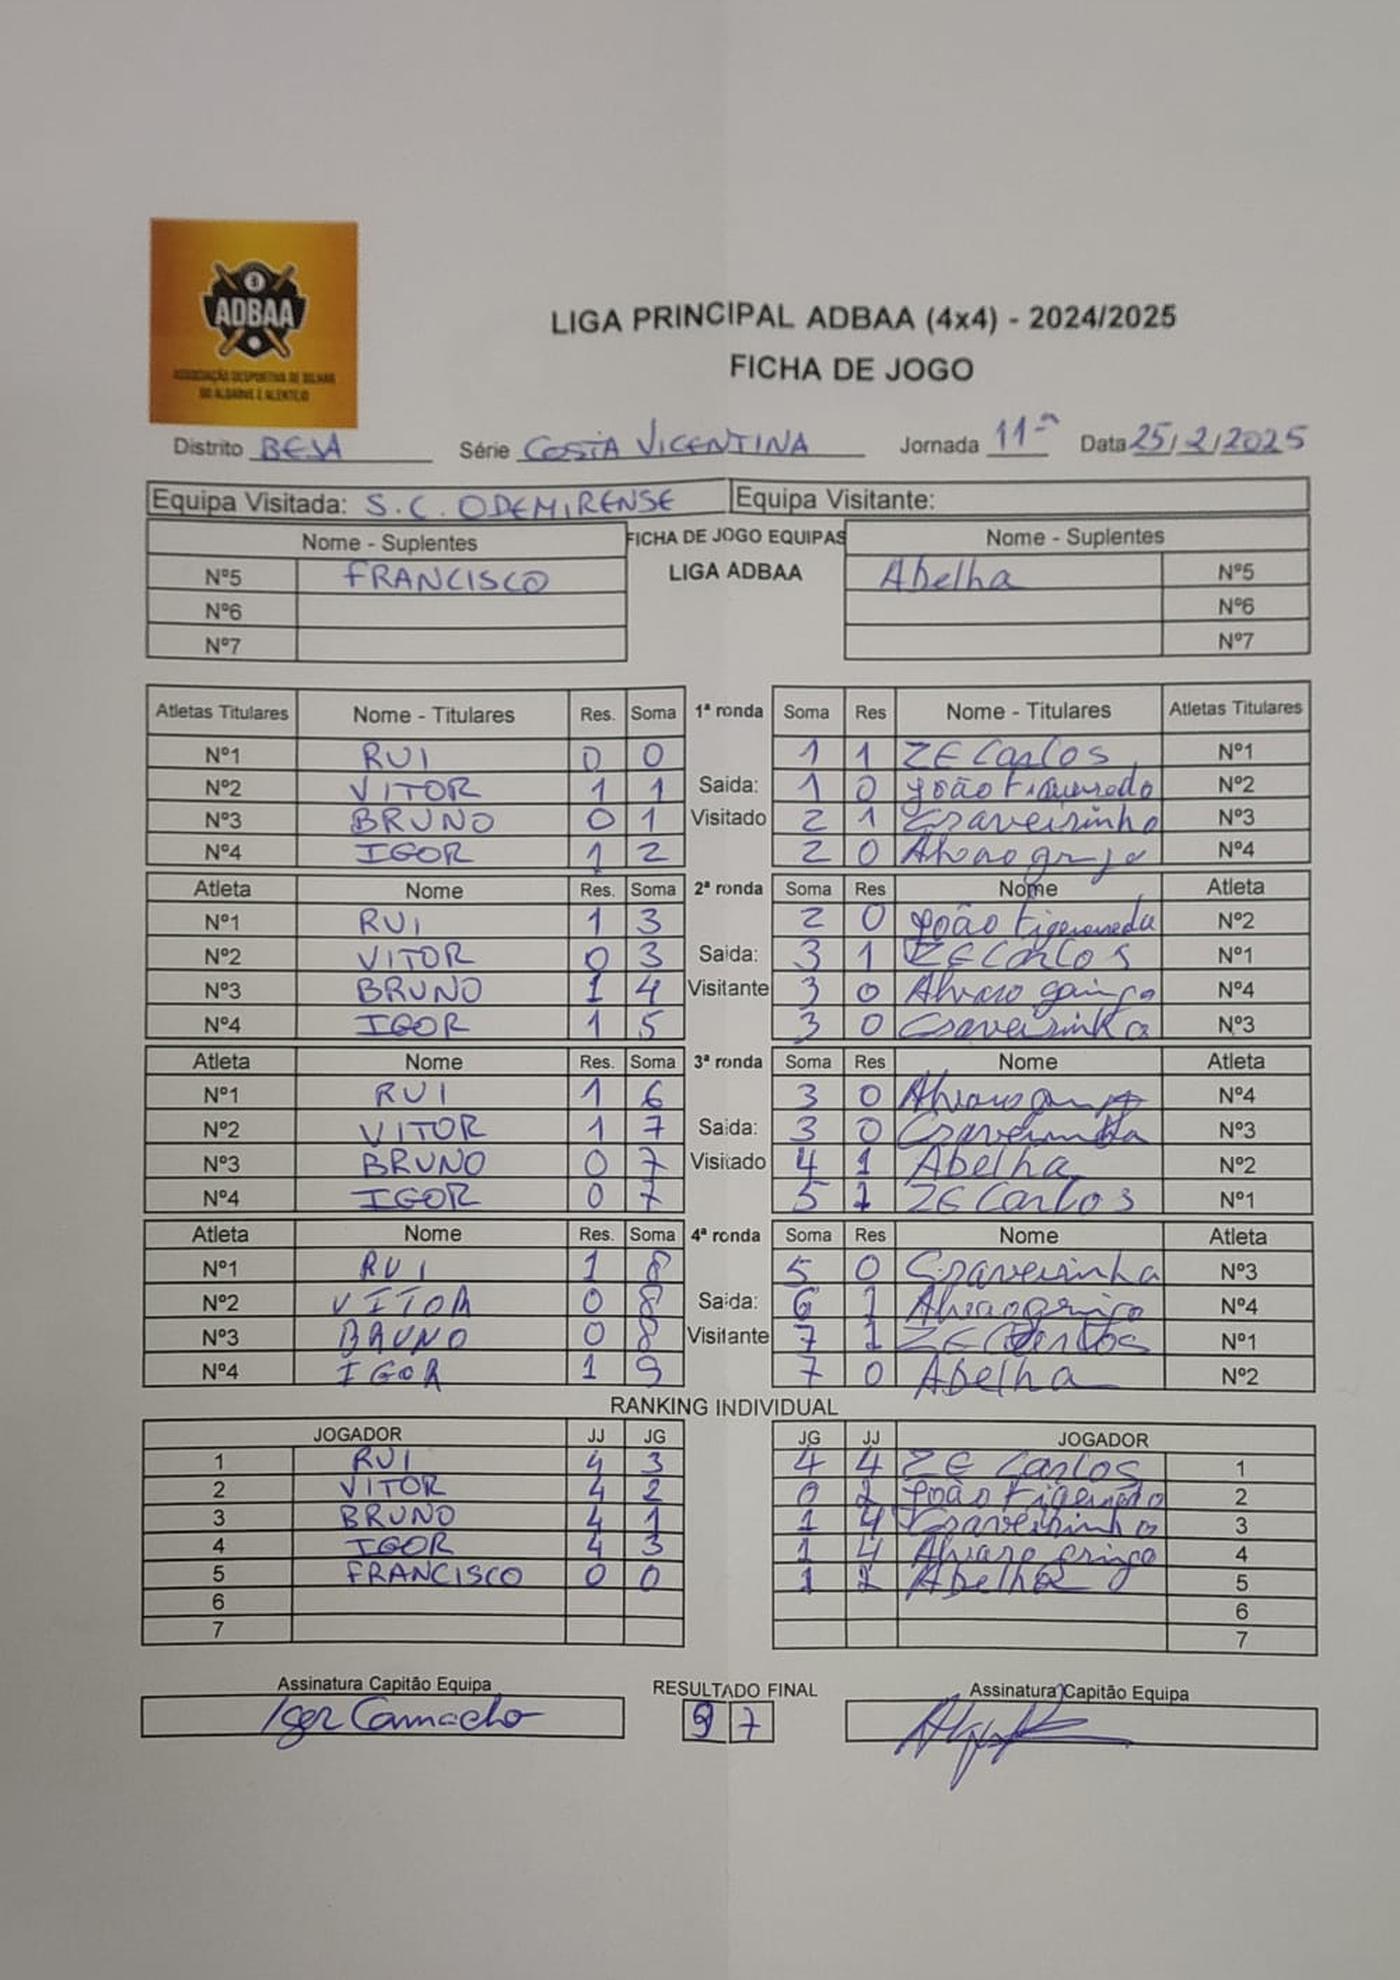 ADBAA
ASSOCIAÇÃO DESPORTIVA DE BILHAR
DO ALGARVE E ALENTEJO
LIGA PRINCIPAL ADBAA (4x4) - 2024/2025
FICHA DE JOGO
Distrito BEJA Série COSTA VICENTINA Jornada 11ª Data 25/2/2025
Equipa Visitada: S.C. ODEMIRENSE Equipa Visitante:
Nome - Suplentes FICHA DE JOGO EQUIPAS Nome - Suplentes
Nº5 FRANCISCO LIGA ADBAA Abelha Nº5
Nº6 Nº6
Nº7 Nº7
Atletas Titulares Nome - Titulares Res. Soma 1ª ronda Soma Res Nome - Titulares Atletas Titulares
Nº1 RUI 0 0 1 1 ZE Carlos Nº1
Nº2 VITOR 1 1 Saida: 1 0 João Figueredo Nº2
Nº3 BRUNO 0 1 Visitado 2 1 Craveirinha Nº3
Nº4 IGOR 1 2 2 0 Alvaro Nº4
Atleta Nome Res. Soma 2ª ronda Soma Res Nome Atleta
Nº1 RUI 1 3 2 0 João Nº2
Nº2 VITOR 0 3 Saida: 3 1 ZE Carlos Nº1
Nº3 BRUNO 1 4 Visitante 3 0 Alvaro Nº4
Nº4 IGOR 1 5 3 0 Craveirinha Nº3
Atleta Nome Res. Soma 3ª ronda Soma Res Nome Atleta
Nº1 RUI 1 6 3 0 Alvaro Nº4
Nº2 VITOR 1 7 Saida: 3 0 Craveirinha Nº3
Nº3 BRUNO 0 7 Visitado 4 1 Abelha Nº2
Nº4 IGOR 0 7 5 1 ZE Carlos Nº1
Atleta Nome Res. Soma 4ª ronda Soma Res Nome Atleta
Nº1 RUI 1 8 5 0 Craveirinha Nº3
Nº2 VITOR 0 8 Saida: 6 1 Alvaro Nº4
Nº3 BRUNO 0 8 Visitante 7 1 ZE Carlos Nº1
Nº4 IGOR 1 9 7 0 Abelha Nº2
RANKING INDIVIDUAL
JOGADOR JJ JG JG JJ JOGADOR
1 RUI 4 3 4 4 ZE Carlos 1
2 VITOR 4 2 0 2 João 2
3 BRUNO 4 1 1 4 Craveirinha 3
4 IGOR 4 3 1 4 Alvaro 4
5 FRANCISCO 0 0 1 2 Abelha 5
6 6
7 7
Assinatura Capitão Equipa RESULTADO FINAL Assinatura Capitão Equipa
Igor Camacho 9 7